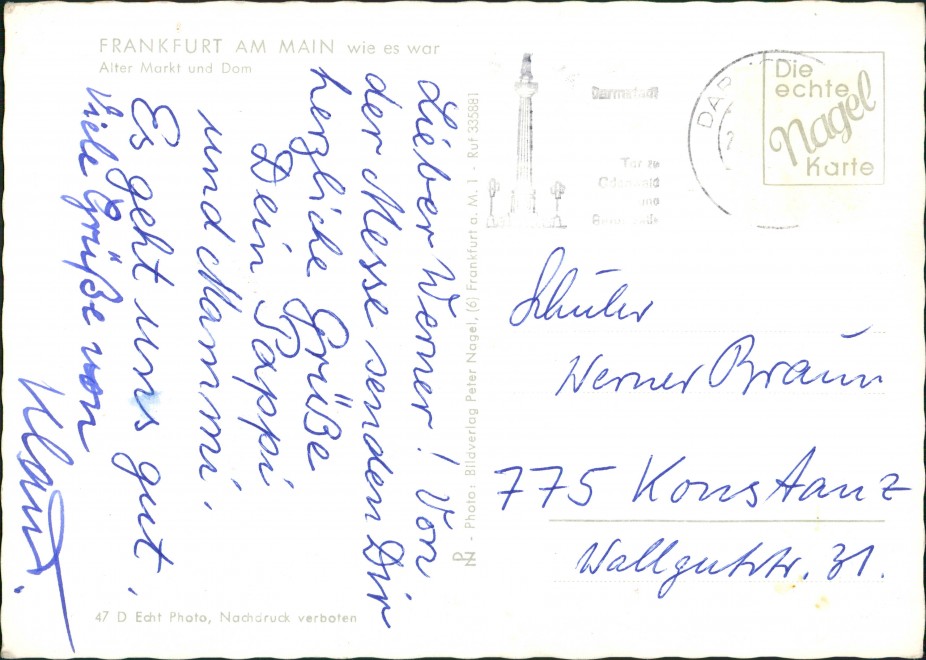 FRANKFURT AM MAIN wie es war
Alter Markt und Dom
Lieber Werner! Von
der Messe senden Dir
herzliche Grüße
Dein Pappi
und Mammi.
Es geht uns gut.
Viele Grüße von
Klaus.
47 D Echt Photo, Nachdruck verboten
PN - Photo: Bildverlag Peter Nagel, (6) Frankfurt a. M. 1 - Ruf 335881
Darmstadt
Tor zu
Odenwald
und
DAR
Die
echte
Nagel
Karte
Schüler
Werner Braun
775 Konstanz
Wallgutstr. 31.